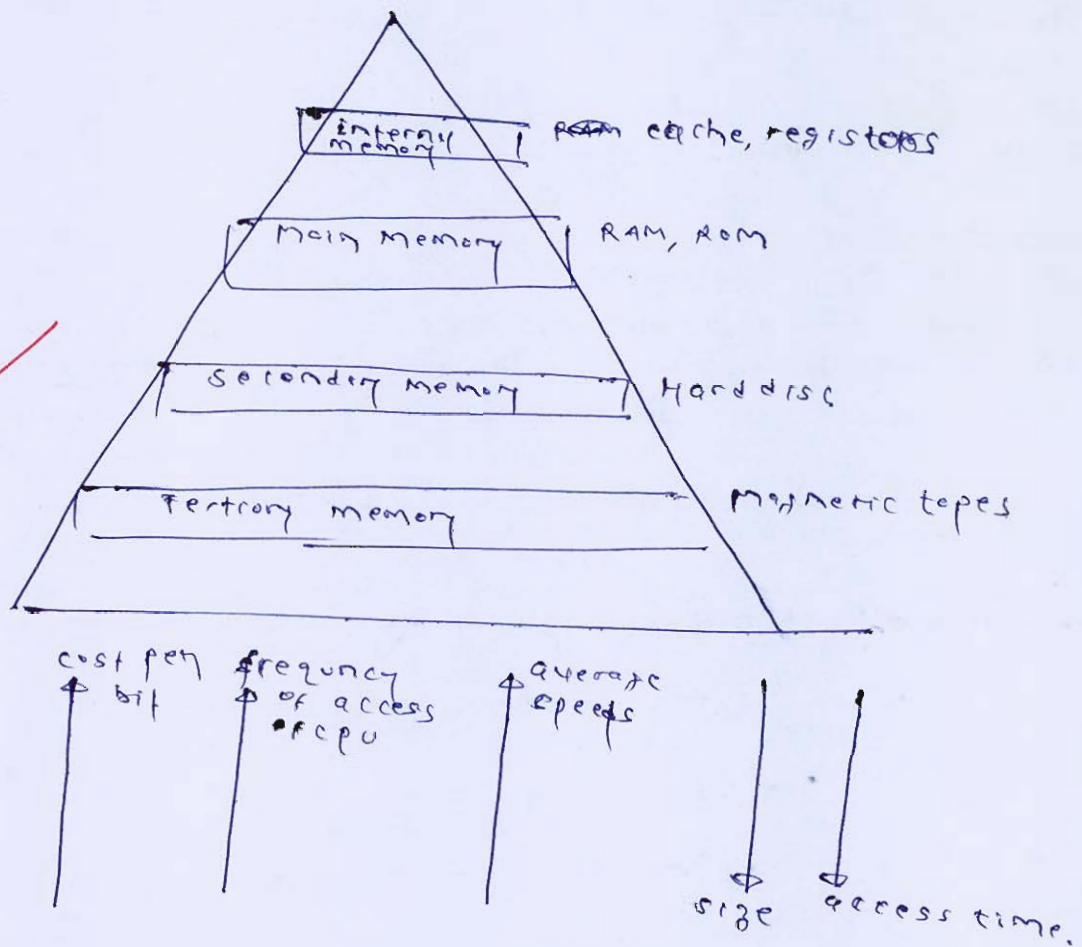 interny
memory
cache, registors
Main memory
RAM, ROM
secondery memory
Hard disc
Tertiory memory
Magnetic tapes
cost per
bit
frequncy
of access
of cpu
average
speeds
size
access time.